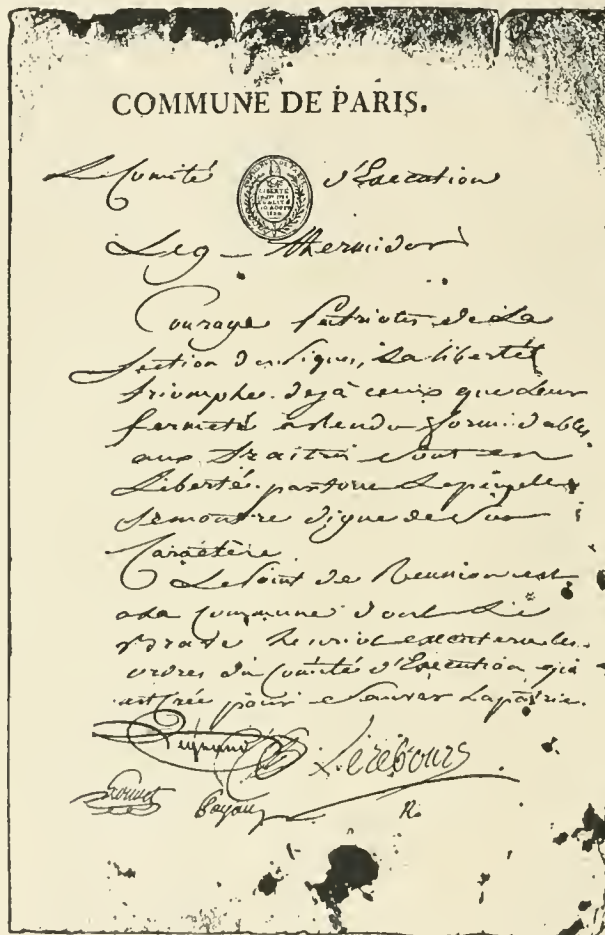 COMMUNE DE PARIS.
Comité d'Execution
Le 9 thermidor
Courage Patriotes de la
Section des Piques, La liberté
triomphe. deja ceux que leur
fermeté a rendu formidables
aux traitres sont en
Liberté. partout Le peuple
se montre digne de son
Caractère
Le Point de Reunion est
a la Commune dont le
brave henriot executera les
ordres du Comité d'Execution qui
est Créé pour Sauver La patrie.
Legrand Lerebours
Louvet Payan R.